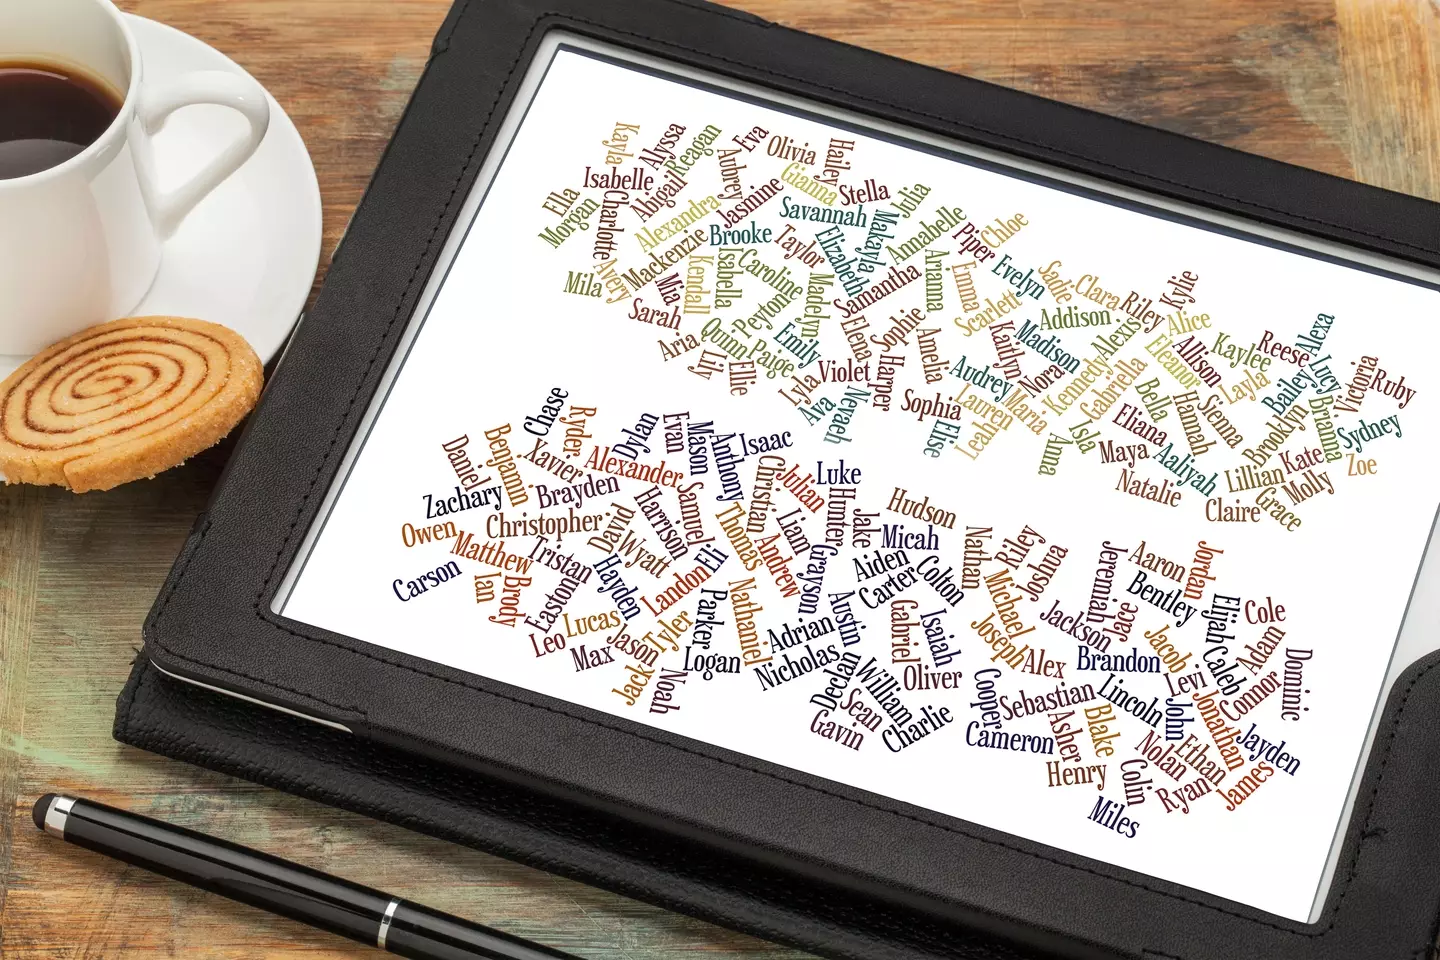 Kayla
Alyssa
Reagan
Eva
Olivia
Hailey
Isabelle
Abigail
Aubrey
Jasmine
Gianna
Stella
Julia
Ella
Morgan
Charlotte
Alexandra
Savannah
Makayla
Annabelle
Chloe
Mackenzie
Brooke
Taylor
Elizabeth
Piper
Mila
Avery
Mia
Kendall
Isabella
Caroline
Madelyn
Samantha
Arianna
Emma
Evelyn
Sadie
Clara
Riley
Kylie
Sarah
Peyton
Scarlett
Addison
Alexis
Alice
Alexa
Aria
Quinn
Paige
Emily
Elena
Sophie
Amelia
Kaitlyn
Madison
Eleanor
Allison
Kaylee
Reese
Lucy
Victoria
Ruby
Lily
Ellie
Lyla
Violet
Harper
Audrey
Nora
Kennedy
Gabriella
Layla
Bailey
Ava
Nevaeh
Sophia
Elise
Lauren
Leah
Maria
Isla
Bella
Hannah
Sienna
Brooklyn
Brianna
Sydney
Anna
Maya
Eliana
Aaliyah
Natalie
Lillian
Kate
Zoe
Claire
Grace
Molly
Chase
Ryder
Dylan
Evan
Mason
Anthony
Isaac
Daniel
Benjamin
Xavier
Alexander
Christian
Julian
Luke
Zachary
Brayden
Harrison
Samuel
Hunter
Jake
Hudson
Owen
Christopher
David
Wyatt
Thomas
Liam
Andrew
Grayson
Micah
Nathan
Riley
Joshua
Matthew
Tristan
Hayden
Landon
Eli
Aiden
Carter
Colton
Jeremiah
Aaron
Jordan
Carson
Ian
Brody
Easton
Lucas
Tyler
Parker
Nathaniel
Adrian
Austin
Gabriel
Isaiah
Michael
Joseph
Jackson
Jace
Bentley
Elijah
Cole
Leo
Max
Jason
Jack
Noah
Logan
Nicholas
Declan
William
Oliver
Alex
Brandon
Jacob
Levi
Caleb
Adam
Connor
Dominic
Sean
Gavin
Charlie
Cooper
Sebastian
Cameron
Asher
Blake
Lincoln
John
Jonathan
Jayden
Henry
Colin
Nolan
Ethan
Ryan
James
Miles